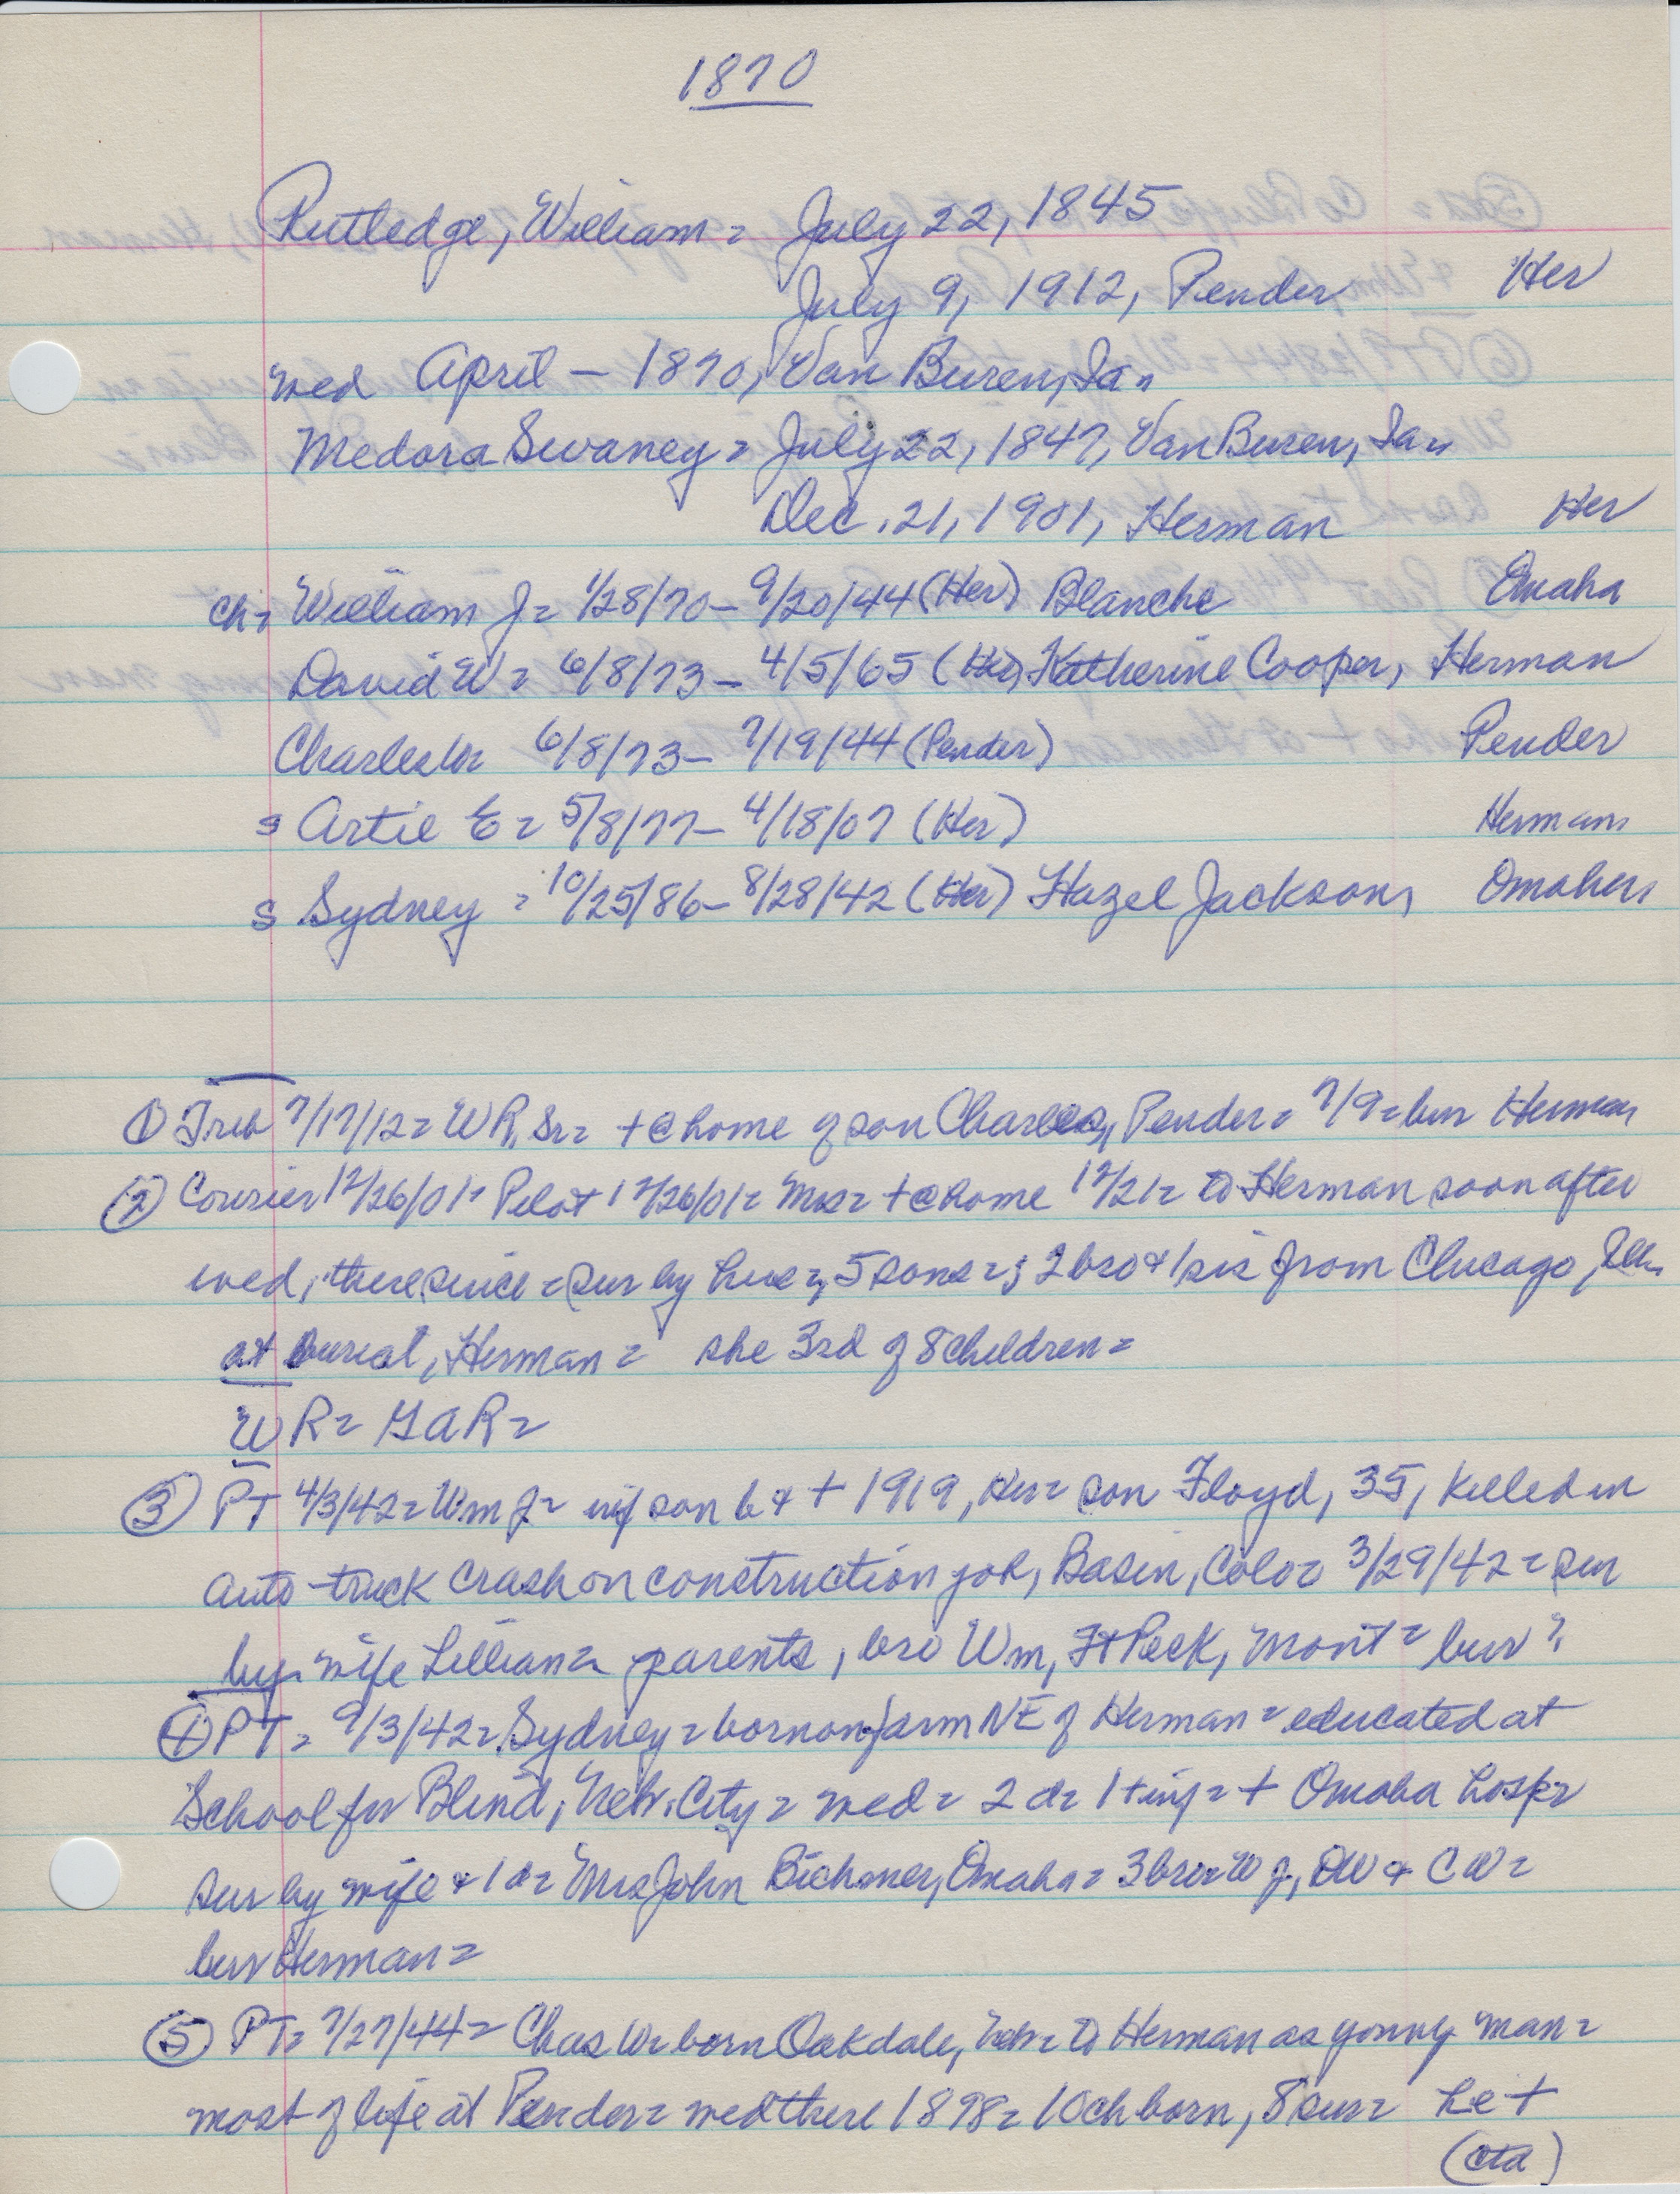 1870
Rutledge, William = July 22, 1845
July 9, 1912, Pender Her
wed April – 1870, Van Buren, Ia =
Medora Swaney = July 22, 1847, Van Buren, Ia =
Dec. 21, 1901, Herman Her
ch = William J = 1/28/70 – 9/20/44 (Her) Blanche Omaha
David W = 6/8/73 – 4/5/65 (Her) Katherine Cooper, Herman
Charles W = 6/8/73 – 7/19/44 (Pender) Pender
s Artie E = 5/8/77 – 4/18/07 (Her) Herman
s Sydney = 10/25/86 – 8/28/42 (Her) Hazel Jackson, Omaha
① Trib 7/17/12 = WR, Sr = + @ home of son Charles, Pender = 7/9 = bur Herman
② Courier 12/26/01 = Pilot 12/26/01 = Mrs = + @ home 12/21 = to Herman soon after
wed, there since = sur by hus =, 5 sons = ; 2 bro & 1 sis from Chicago, Ill
at burial, Herman = she 3rd of 8 children =
WR = GAR =
③ PT 4/3/42 = Wm J = inf son b & + 1919, Her = son Floyd, 35, killed in
auto-truck crash on construction job, Basin, Colo = 3/29/42 = sur
by wife Lillian = parents, bro Wm, Ft Peck, Mont = bur ?
④ PT = 9/3/42 = Sydney = born on farm NE of Herman = educated at
School for Blind, Nebr. City = wed = 2 d = 1 + inf = + Omaha hosp =
sur by wife & 1 d = Mrs John Omaha = 3 bro = W J, DW & C W =
bur Herman =
⑤ PT = 7/27/44 = Chas W = born Oakdale, Nebr = to Herman as young man =
most of life at Pender = wed there 1898 = 10 ch born, 8 sur = he +
(ctd)